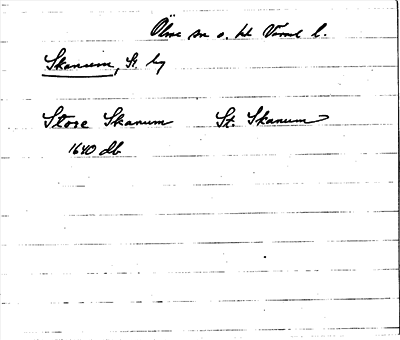 Ölme sn o. hd Värml l.
Skanum, St. by
Store Skanum St. Skanum
1640 db